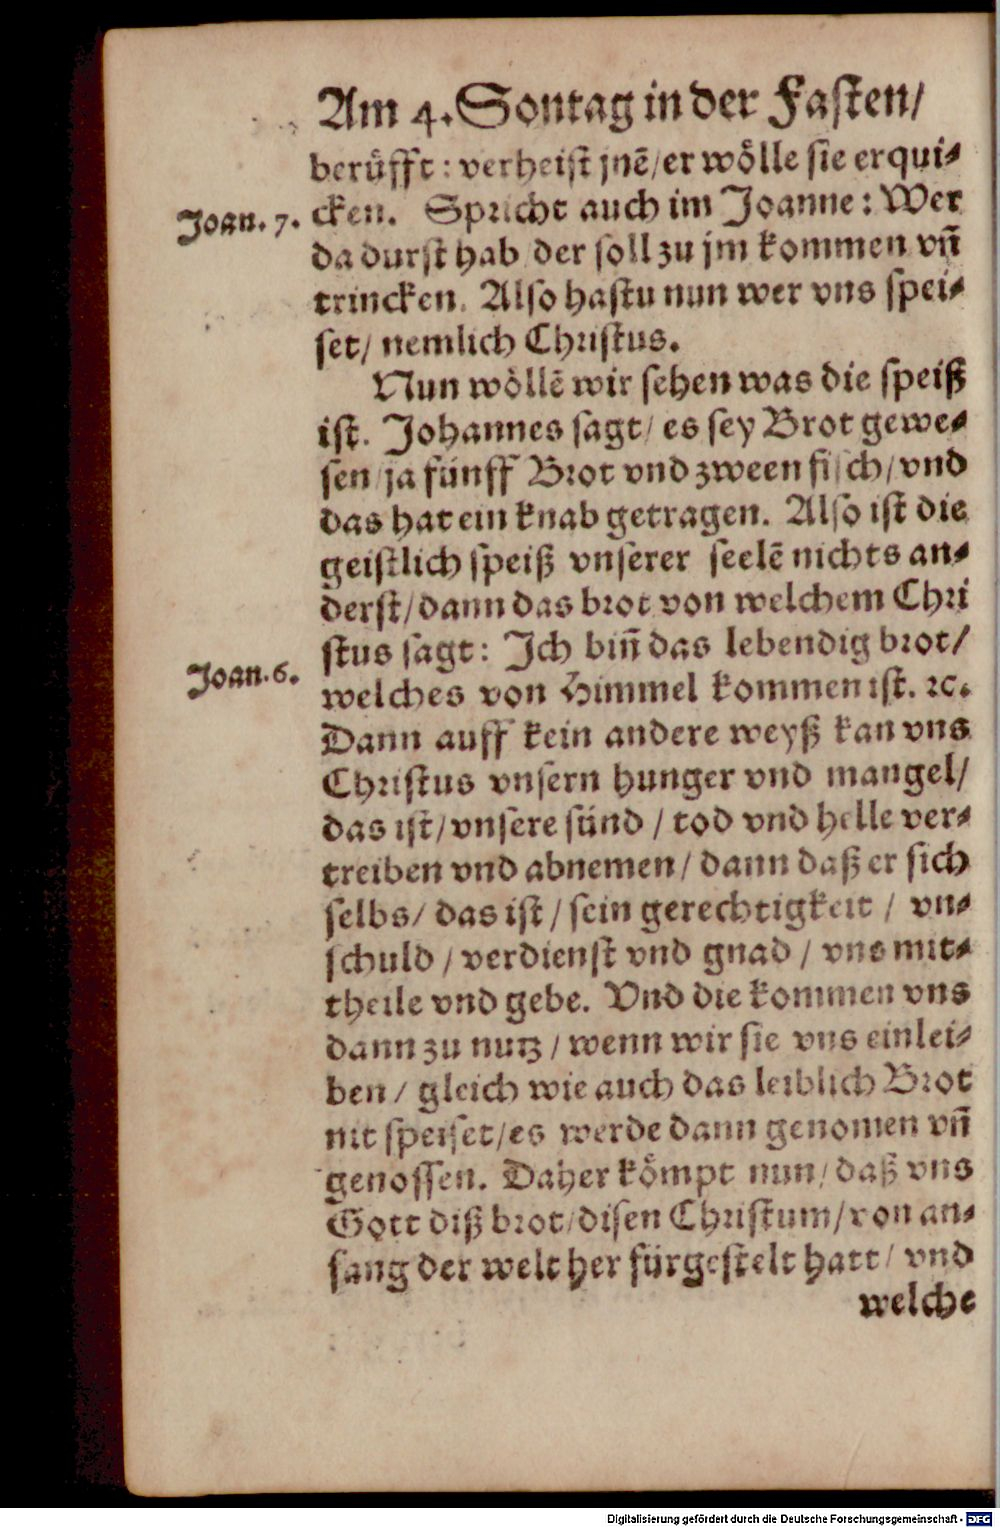 Am 4. Sontag in der Fasten/
berüfft: verheist jnē/er wölle sie erqui-
Joan. 7. cken. Spricht auch im Joanne: Wer
da durst hab der soll zu jm kommen vn̄
trincken. Also hastu nun wer vns spei-
set/ nemlich Christus.
Nun wöllē wir sehen was die speiß
ist. Johannes sagt/ es sey Brot gewe-
sen/ja fünff Brot vnd zween fisch/vnd
das hat ein knab getragen. Also ist die
geistlich speiß vnserer seelē nichts an-
derst/dann das brot von welchem Chri
stus sagt: Ich bin̄ das lebendig brot/
Joan. 6. welches von Himmel kommen ist. ꝛc.
Dann auff kein andere weyß kan vns
Christus vnsern hunger vnd mangel/
das ist/vnsere sünd / tod vnd helle ver-
treiben vnd abnemen/ dann daß er sich
selbs/ das ist / sein gerechtigkeit / vn-
schuld / verdienst vnd gnad / vns mit-
theile vnd gebe. Vnd die kommen vns
dann zu nutz / wenn wir sie vns einlei-
ben / gleich wie auch das leiblich Brot
nit speiset/es werde dann genomen vn̄
genossen. Daher kömpt nun/ daß vns
Gott diß brot/disen Christum/von an-
fang der welt her fürgestelt hatt/ vnd
welche
Digitalisierung gefördert durch die Deutsche Forschungsgemeinschaft - DFG